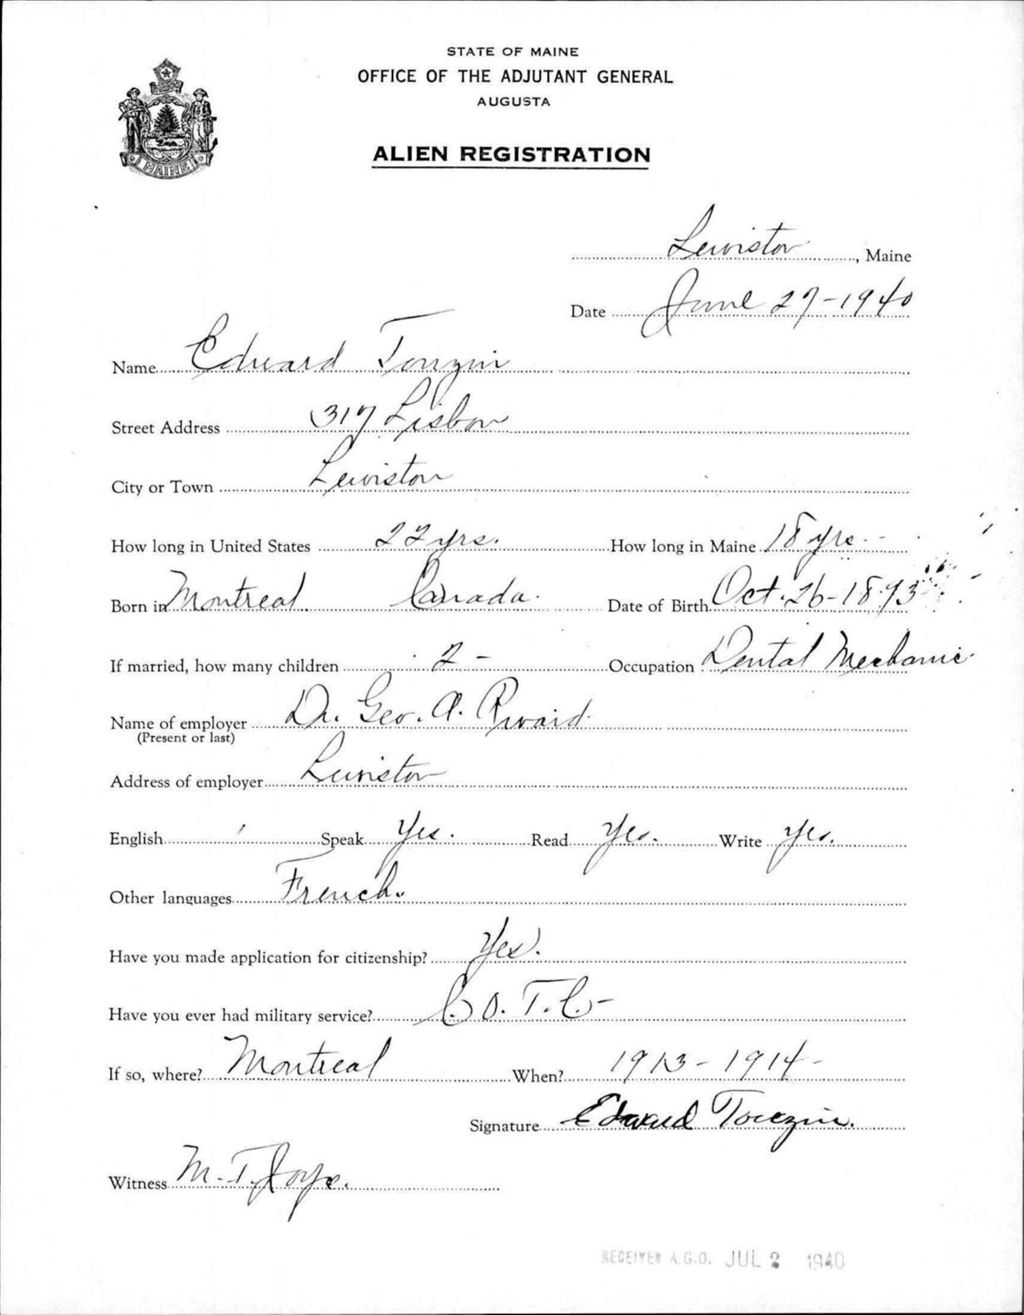 STATE OF MAINE
OFFICE OF THE ADJUTANT GENERAL
AUGUSTA
ALIEN REGISTRATION
MAINE
Lewiston, Maine
Date June 27-1940
Name Edward Touzin
Street Address 317 Lisbon
City or Town Lewiston
How long in United States 22 yrs. How long in Maine 18 yrs.
Born in Montreal Canada. Date of Birth Oct. 26-1893
If married, how many children 2 - Occupation Dental Mechanic
Name of employer Dr. Geo. A. Rivard
(Present or last)
Address of employer Lewiston
English Speak Yes. Read Yes. Write Yes.
Other languages French.
Have you made application for citizenship? Yes.
Have you ever had military service? C.O.T.C-
If so, where? Montreal When? 1913-1914-
Signature Edward Touzin.
Witness M. T. Joyce.
RECEIVED A.G.O. JUL 2 1940